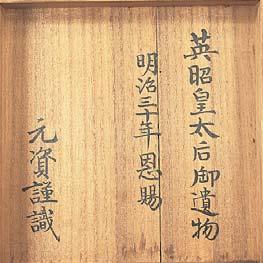 英昭皇太后御遺物
明治三十年恩賜
元資謹識